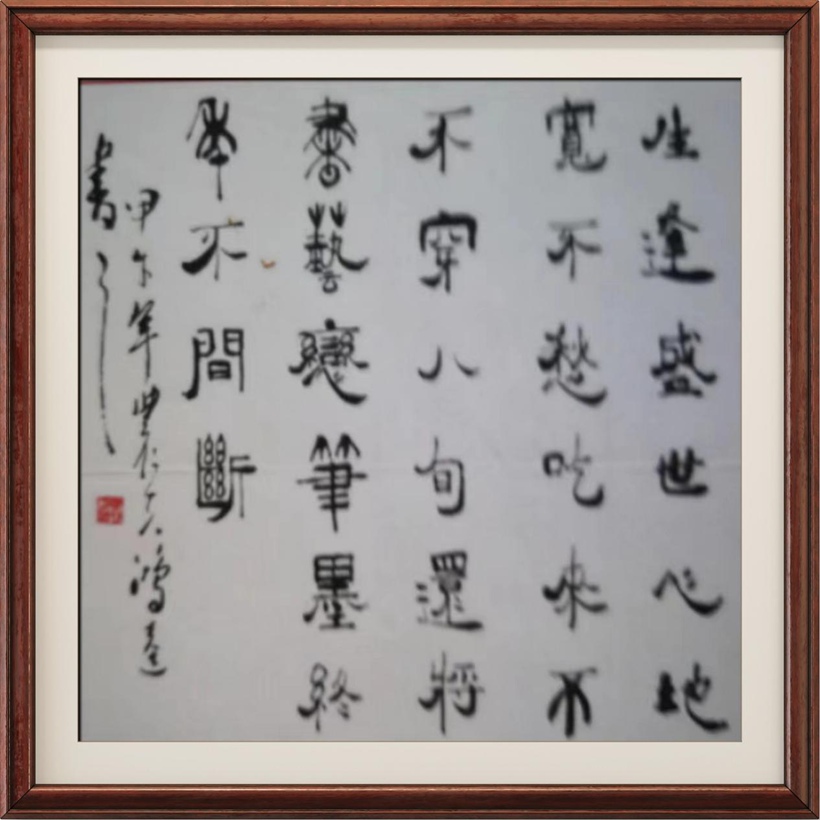 生逢盛世心地
寬不愁吃來不
不穿八旬還將
書藝戀筆墨終
年不間斷
甲午年鴻達
書之